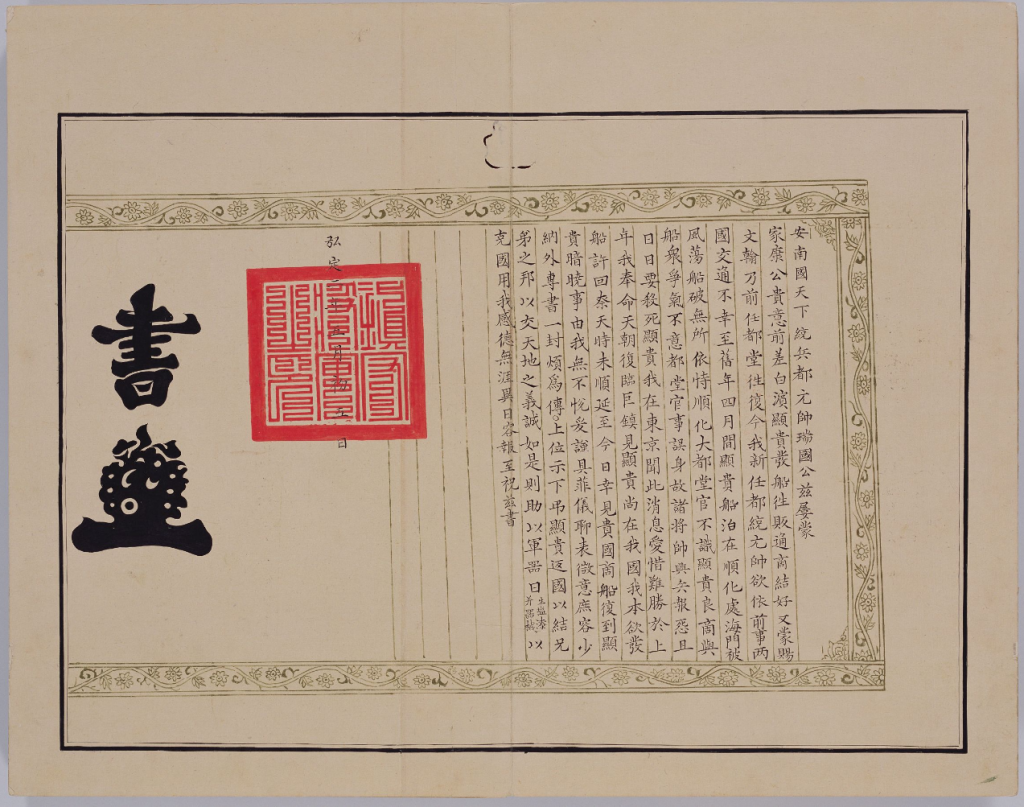 安南國天下統兵都元帥瑞國公茲屢蒙
家康公貴意前差白濵顯貴發船徃販通商結好又蒙賜
文翰乃前任都堂徃復今我新任都統元帥欲依前事两
國交通不幸至舊年四月間顯貴船泊在順化處海門被
風蕩船破無所依恃順化大都堂官不識顯貴良商與
船衆爭氣不意都堂官事誤身故諸將帥興兵報惡且
日日要殺死顯貴我在東京聞此消息愛惜難勝於上
年我奉命天朝復臨巨鎮見顯貴尚在我國我本欲發
船許回奈天時未順延至今日幸見貴國商船復到顯
貴暗曉事由我無不悅爰謹具菲儀聊表微意庶容少
納外專書一封煩為傳上位示下吊顯貴返國以結兄
弟之邦以交天地之義誠如是則助以軍器日生塩漆并器械以
克國用我感德無涯異日容報至祝茲書
弘定二年五月初五日
書